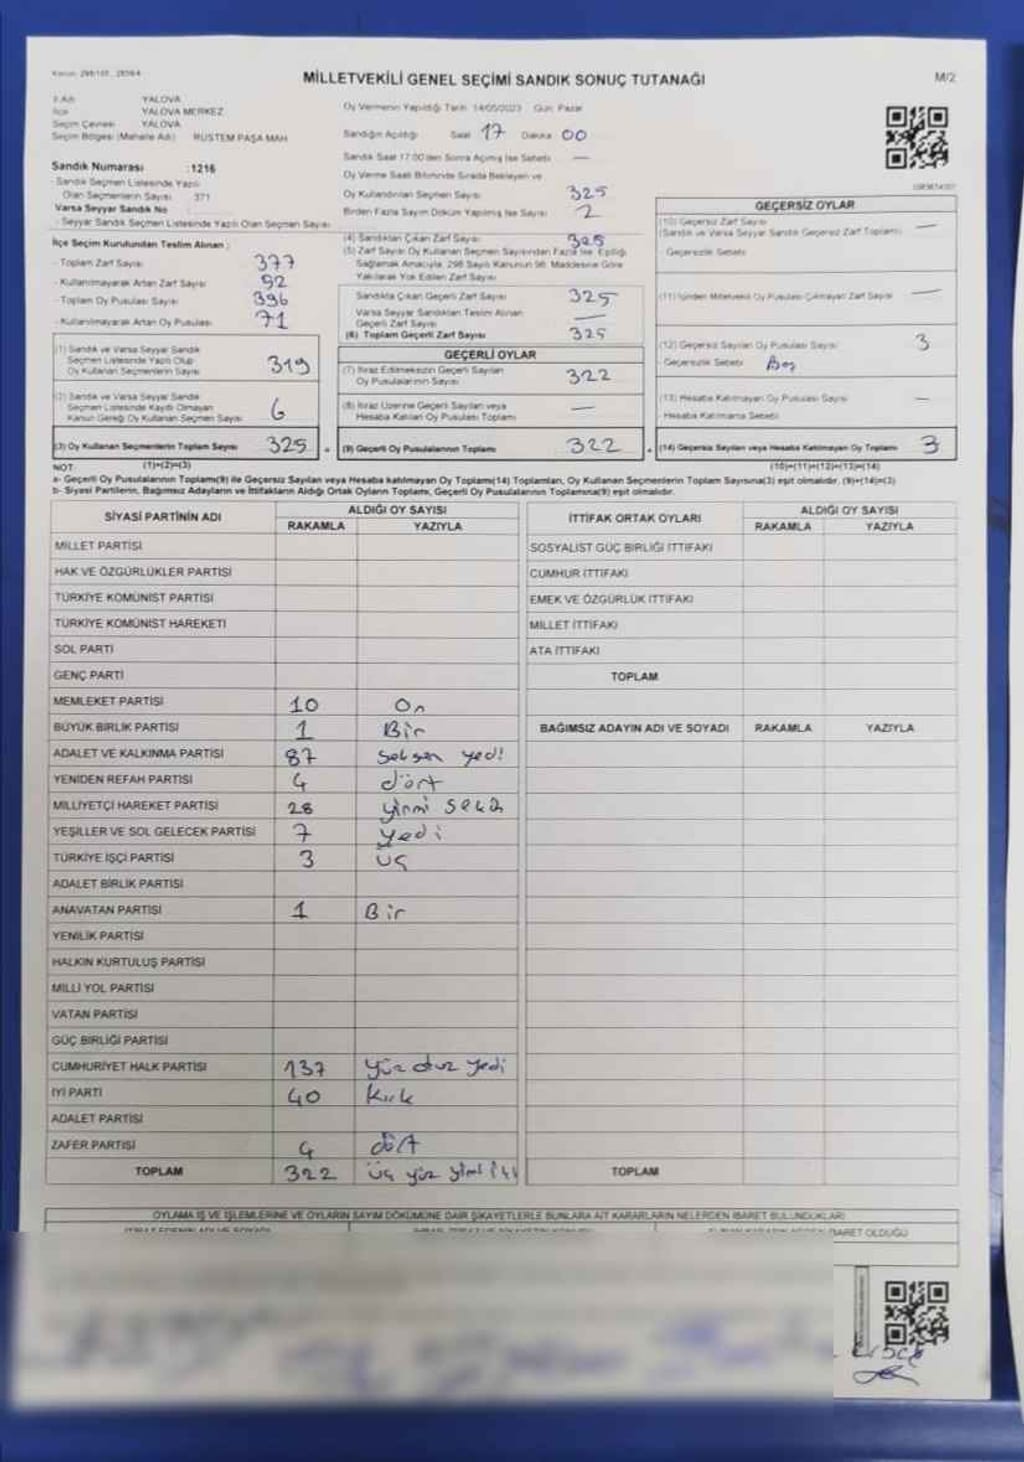 MİLLETVEKİLİ GENEL SEÇİMİ SANDIK SONUÇ TUTANAĞI
M/2
YALOVA
YALOVA MERKEZ
Seçim Çevresi YALOVA
Seçim Bölgesi (Mahalle Adı) RÜSTEM PAŞA MAH
Sandık Numarası : 1216
- Sandık Seçmen Listesinde Yazılı
Olan Seçmenlerin Sayısı 371
Varsa Seyyar Sandık No
- Seyyar Sandık Seçmen Listesinde Yazılı Olan Seçmen Sayısı
İlçe Seçim Kurulundan Teslim Alınan ;
- Toplam Zarf Sayısı 377
- Kullanılmayarak Artan Zarf Sayısı 92
- Toplam Oy Pusulası Sayısı 396
- Kullanılmayarak Artan Oy Pusulası 71
(1) Sandık ve Varsa Seyyar Sandık
Seçmen Listesinde Yazılı Olup
Oy Kullanan Seçmenlerin Sayısı 319
(2) Sandık ve Varsa Seyyar Sandık
Seçmen Listesinde Kaydı Olmayan
Kanun Gereği Oy Kullanan Seçmen Sayısı 6
(3) Oy Kullanan Seçmenlerin Toplam Sayısı 325
(1)+(2)=(3)
Oy Vermenin Yapıldığı Tarih 14/05/2023 Gün Pazar
Sandığın Açıldığı Saat 17 Dakika 00
Sandık Saat 17:00'den Sonra Açılmış İse Sebebi —
Oy Verme Saati Bitiminde Sırada Bekleyen ve
Oy Kullandırılan Seçmen Sayısı 325
Birden Fazla Sayım Döküm Yapılmış İse Sayısı 2
(4) Sandıktan Çıkan Zarf Sayısı 325
(5) Zarf Sayısı Oy Kullanan Seçmen Sayısından Fazla İse, Eşitliği
Sağlamak Amacıyla, 298 Sayılı Kanunun 98. Maddesine Göre
Yakılarak Yok Edilen Zarf Sayısı
Sandıkta Çıkan Geçerli Zarf Sayısı 325
Varsa Seyyar Sandıktan Teslim Alınan
Geçerli Zarf Sayısı —
(6) Toplam Geçerli Zarf Sayısı 325
GEÇERLİ OYLAR
(7) İtiraz Edilmeksizin Geçerli Sayılan
Oy Pusulalarının Sayısı 322
(8) İtiraz Üzerine Geçerli Sayılan veya
Hesaba Katılan Oy Pusulası Toplamı —
(9) Geçerli Oy Pusulalarının Toplamı 322
GEÇERSİZ OYLAR
(10) Geçersiz Zarf Sayısı
(Sandık ve Varsa Seyyar Sandık Geçersiz Zarf Toplamı) —
- Geçersizlik Sebebi
(11) İçinden Milletvekili Oy Pusulası Çıkmayan Zarf Sayısı —
(12) Geçersiz Sayılan Oy Pusulası Sayısı 3
- Geçersizlik Sebebi Boş
(13) Hesaba Katılmayan Oy Pusulası Sayısı —
- Hesaba Katılmama Sebebi
(14) Geçersiz Sayılan veya Hesaba Katılmayan Oy Toplamı 3
(10)+(11)+(12)+(13)=(14)
NOT:
a- Geçerli Oy Pusulalarının Toplamı(9) ile Geçersiz Sayılan veya Hesaba katılmayan Oy Toplamı(14) Toplamları, Oy Kullanan Seçmenlerin Toplam Sayısına(3) eşit olmalıdır. (9)+(14)=(3)
b- Siyasi Partilerin, Bağımsız Adayların ve İttifakların Aldığı Ortak Oyların Toplamı, Geçerli Oy Pusulalarının Toplamına(9) eşit olmalıdır.
SİYASİ PARTİNİN ADI ALDIĞI OY SAYISI
RAKAMLA YAZIYLA
MİLLET PARTİSİ
HAK VE ÖZGÜRLÜKLER PARTİSİ
TÜRKİYE KOMÜNİST PARTİSİ
TÜRKİYE KOMÜNİST HAREKETİ
SOL PARTİ
GENÇ PARTİ
MEMLEKET PARTİSİ 10 On
BÜYÜK BİRLİK PARTİSİ 1 Bir
ADALET VE KALKINMA PARTİSİ 87 Seksen yedi
YENİDEN REFAH PARTİSİ 4 dört
MİLLİYETÇİ HAREKET PARTİSİ 28 yirmi sekiz
YEŞİLLER VE SOL GELECEK PARTİSİ 7 yedi
TÜRKİYE İŞÇİ PARTİSİ 3 üç
ADALET BİRLİK PARTİSİ
ANAVATAN PARTİSİ 1 Bir
YENİLİK PARTİSİ
HALKIN KURTULUŞ PARTİSİ
MİLLİ YOL PARTİSİ
VATAN PARTİSİ
GÜÇ BİRLİĞİ PARTİSİ
CUMHURİYET HALK PARTİSİ 137 yüz otuz yedi
İYİ PARTİ 40 Kırk
ADALET PARTİSİ
ZAFER PARTİSİ 4 dört
TOPLAM 322 üç yüz yirmi iki
İTTİFAK ORTAK OYLARI ALDIĞI OY SAYISI
RAKAMLA YAZIYLA
SOSYALİST GÜÇ BİRLİĞİ İTTİFAKI
CUMHUR İTTİFAKI
EMEK VE ÖZGÜRLÜK İTTİFAKI
MİLLET İTTİFAKI
ATA İTTİFAKI
TOPLAM
BAĞIMSIZ ADAYIN ADI VE SOYADI RAKAMLA YAZIYLA
TOPLAM
OYLAMA İŞ VE İŞLEMLERİNE VE OYLARIN SAYIM DÖKÜMÜNE DAİR ŞİKAYETLERLE BUNLARA AİT KARARLARIN NELERDEN İBARET BULUNDUKLARI
İBARET OLDUĞU